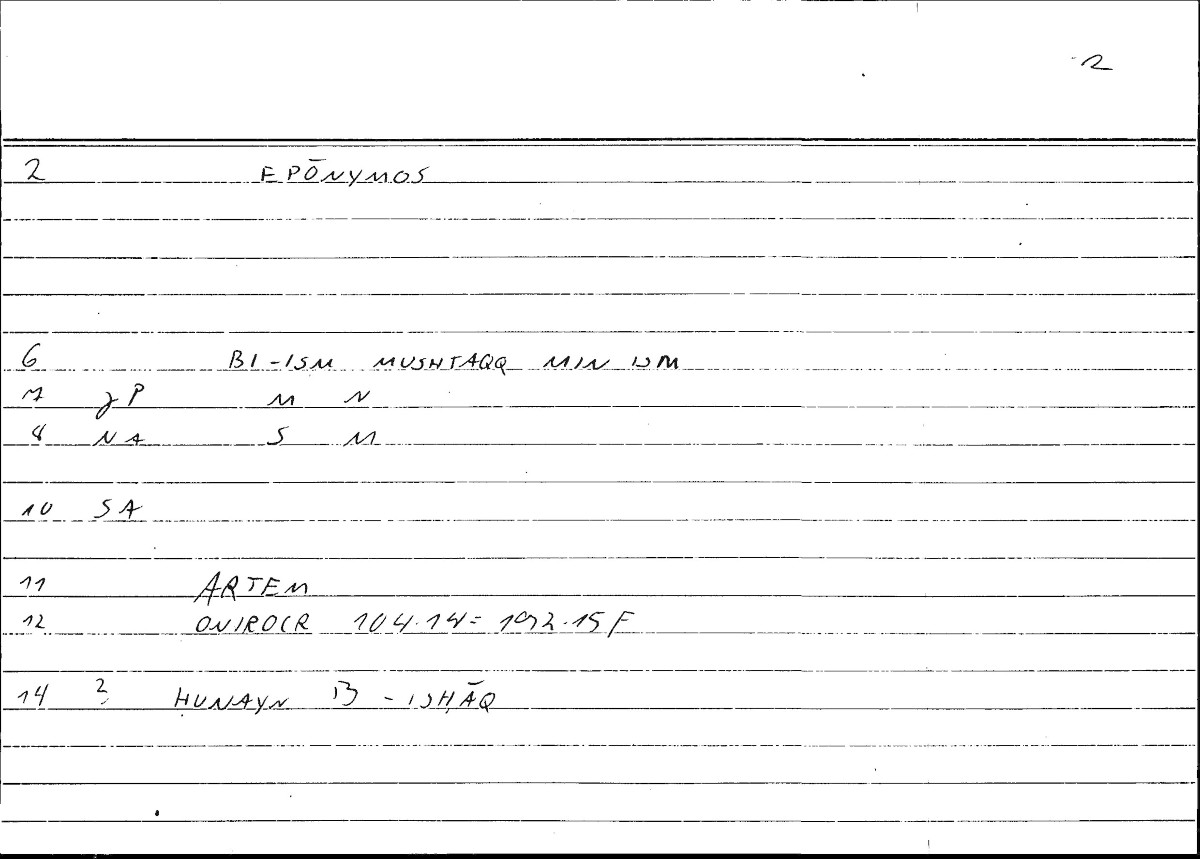 2
2 EPŌNYMOS
6 BI-ISM MUSHTAQQ MIN ISM
7 P M N
8 NA S M
10 SA
11 ARTEM
12 ONIROCR 104.14 = 192.15 F
14 ḤUNAYN B - ISḤĀQ